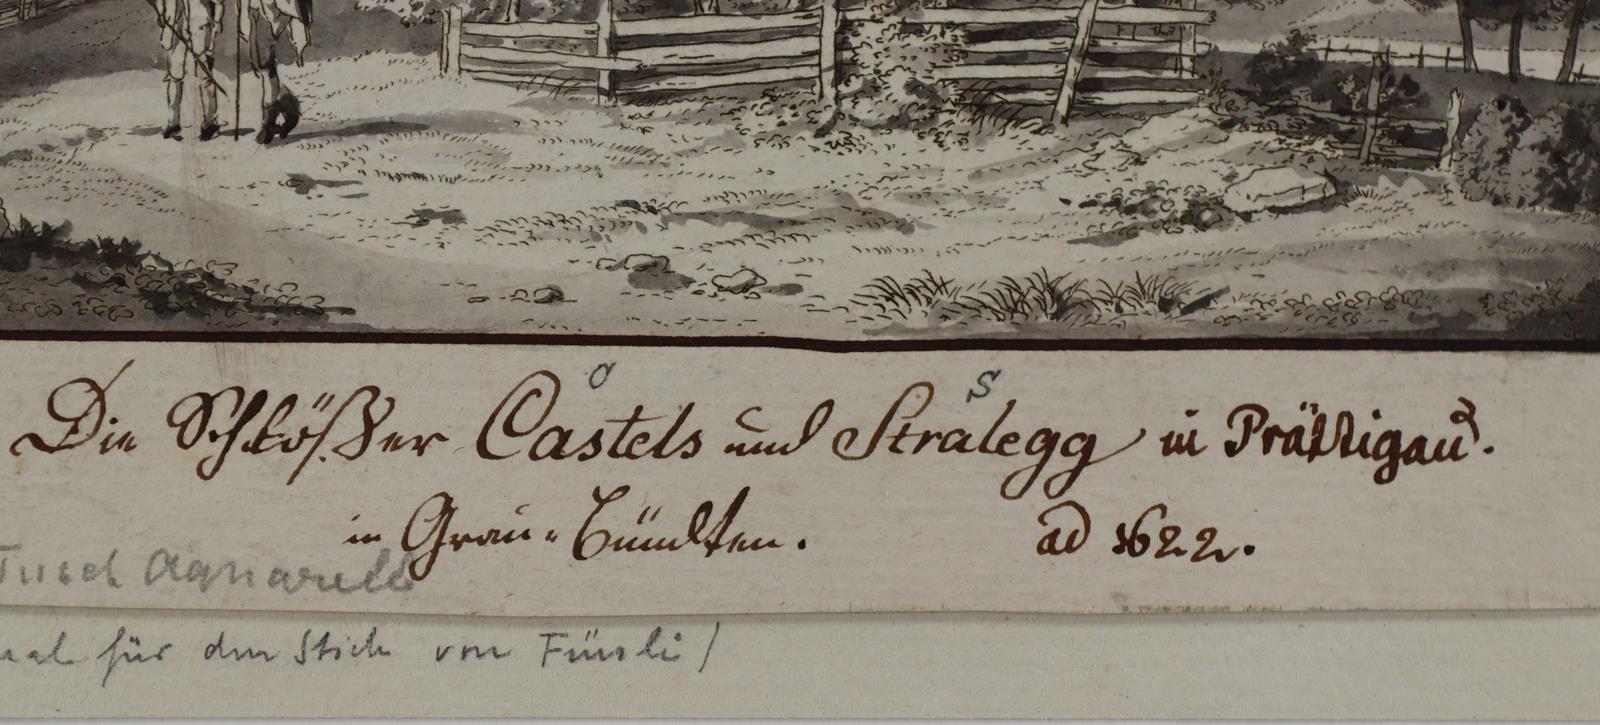 C S
Die Schlößer Castels und Stralegg in Prättigau.
in Grau-Bündten. ad 1622.
Tusch Aquarell
für den Stich von Füssli)